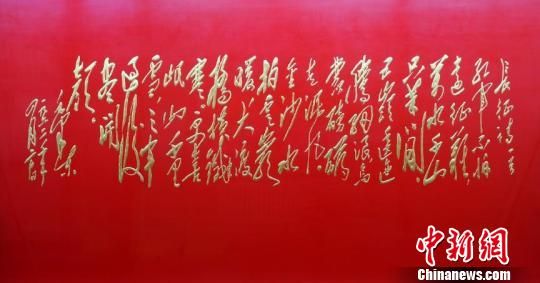 长征诗一首
红军不怕
远征难
万水千山
只等闲
五岭逶迤
腾细浪乌
蒙磅礴
走泥丸
金沙水
拍云崖
暖大渡
桥横铁索
寒更喜
岷山千里
雪三军
过后
尽开
颜
毛泽东
中新网
Chinanews.com